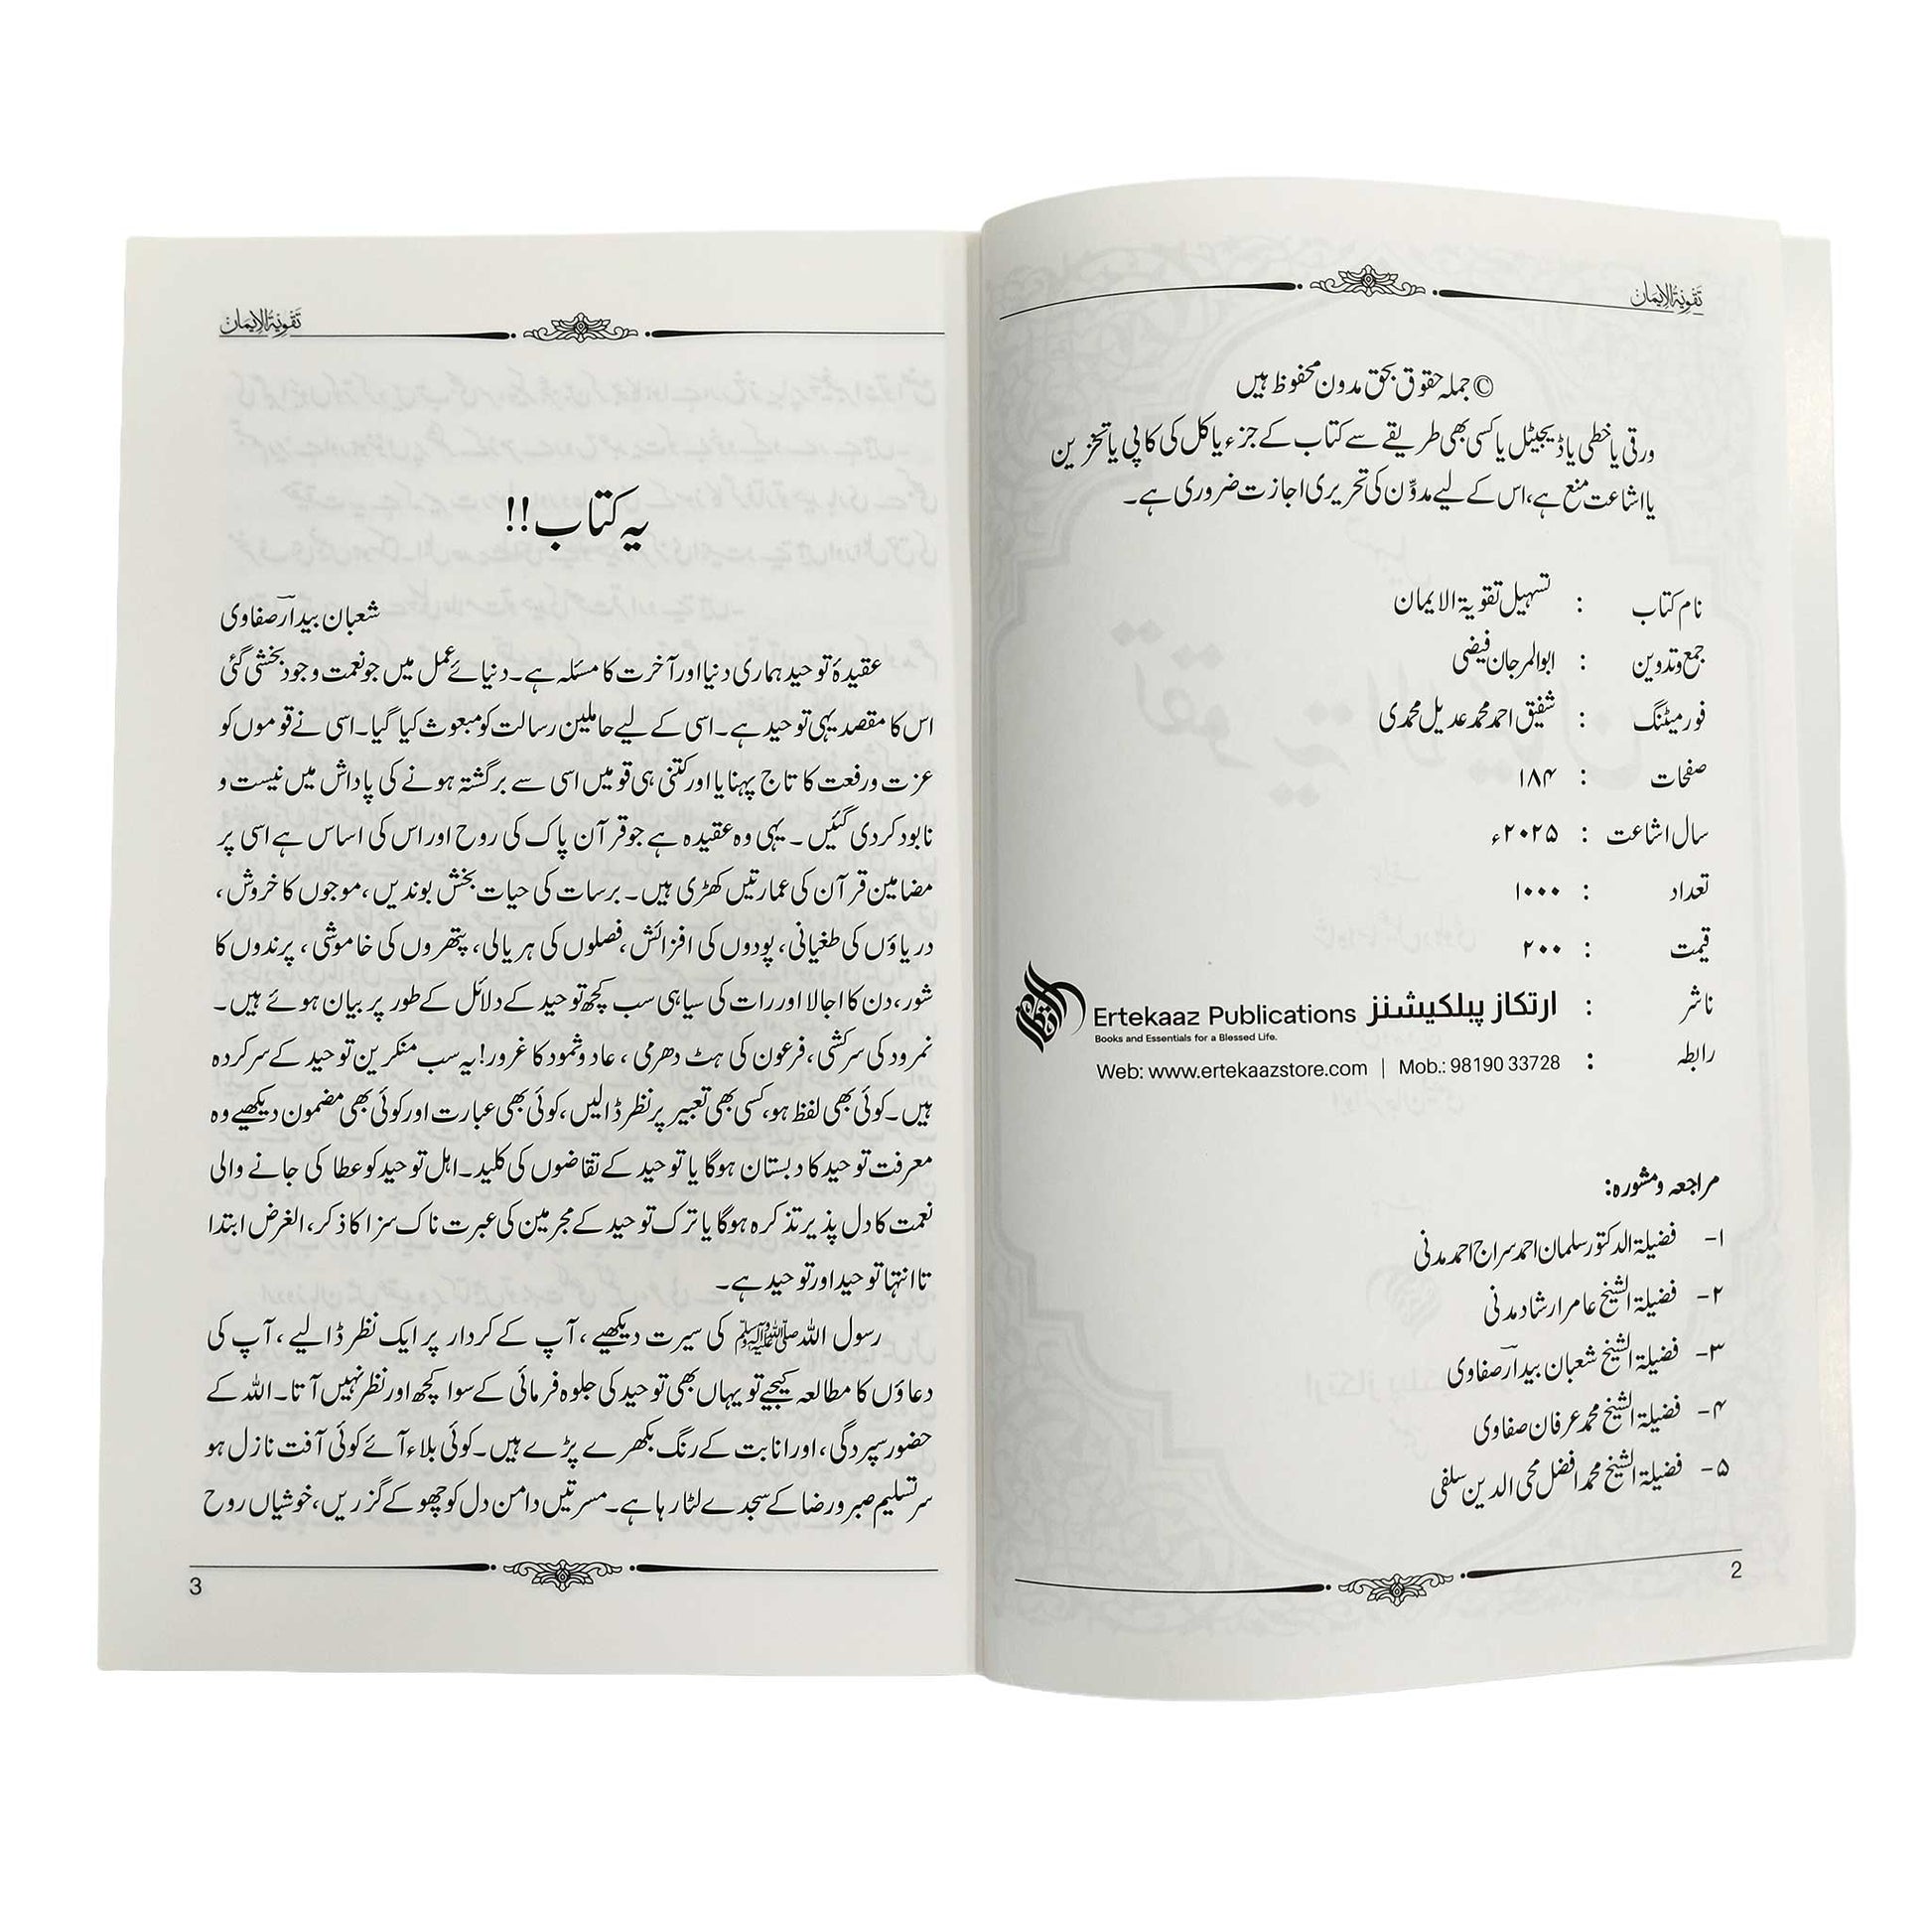 تقویۃ الایمان
© جملہ حقوق بحق مدون محفوظ ہیں
ورقی یا خطی یا ڈیجیٹل یا کسی بھی طریقے سے کتاب کے جزء یا کل کی کاپی یا تخزین
یا اشاعت منع ہے، اس کے لیے مدوِّن کی تحریری اجازت ضروری ہے۔
نام کتاب : تسہیل تقویۃ الایمان
جمع و تدوین : ابوالمرجان فیضی
فورمیٹنگ : شفیق احمد محمد عدیل محمدی
صفحات : ۱۸۴
سال اشاعت : ۲۰۲۵ء
تعداد : ۱۰۰۰
قیمت : ۲۰۰
ناشر : ارتکاز پبلکیشنز Ertekaaz Publications
Books and Essentials for a Blessed Life.
رابطہ : Web: www.ertekaazstore.com | Mob.: 98190 33728
مراجعہ و مشورہ:
۱- فضیلۃ الدکتور سلمان احمد سراج احمد مدنی
۲- فضیلۃ الشیخ عامر ارشاد مدنی
۳- فضیلۃ الشیخ شعبان بیدارؔ صفاوی
۴- فضیلۃ الشیخ محمد عرفان صفاوی
۵- فضیلۃ الشیخ محمد افضل محی الدین سلفی
2
تقویۃ الایمان
یہ کتاب!!
شعبان بیدارؔ صفاوی
عقیدۂ توحید ہماری دنیا اور آخرت کا مسئلہ ہے۔ دنیائے عمل میں جو نعمت وجود بخشی گئی
اس کا مقصد یہی توحید ہے۔ اسی کے لیے حاملین رسالت کو مبعوث کیا گیا۔ اسی نے قوموں کو
عزت و رفعت کا تاج پہنایا اور کتنی ہی قومیں اسی سے برگشتہ ہونے کی پاداش میں نیست و
نابود کردی گئیں۔ یہی وہ عقیدہ ہے جو قرآن پاک کی روح اور اس کی اساس ہے اسی پر
مضامین قرآن کی عمارتیں کھڑی ہیں۔ برسات کی حیات بخش بوندیں، موجوں کا خروش،
دریاؤں کی طغیانی، پودوں کی افزائش، فصلوں کی ہریالی، پتھروں کی خاموشی، پرندوں کا
شور، دن کا اجالا اور رات کی سیاہی سب کچھ توحید کے دلائل کے طور پر بیان ہوئے ہیں۔
نمرود کی سرکشی، فرعون کی ہٹ دھرمی، عاد و ثمود کا غرور! یہ سب منکرین توحید کے سرکردہ
ہیں۔ کوئی بھی لفظ ہو، کسی بھی تعبیر پر نظر ڈالیں، کوئی بھی عبارت اور کوئی بھی مضمون دیکھیے وہ
معرفت توحید کا دبستان ہوگا یا توحید کے تقاضوں کی کلید۔ اہل توحید کو عطا کی جانے والی
نعمت کا دل پذیر تذکرہ ہوگا یا ترک توحید کے مجرمین کی عبرت ناک سزا کا ذکر، الغرض ابتدا
تا انتہا توحید اور توحید ہے۔
رسول اللہ ﷺ کی سیرت دیکھیے، آپ کے کردار پر ایک نظر ڈالیے، آپ کی
دعاؤں کا مطالعہ کیجیے تو یہاں بھی توحید کی جلوہ فرمائی کے سوا کچھ اور نظر نہیں آتا۔ اللہ کے
حضور سپردگی، اور انابت کے رنگ بکھرے پڑے ہیں۔ کوئی بلاء آئے کوئی آفت نازل ہو
سر تسلیم صبر و رضا کے سجدے لٹا رہا ہے۔ مسرتیں دامن دل کو چھو کے گزریں، خوشیاں روح
3